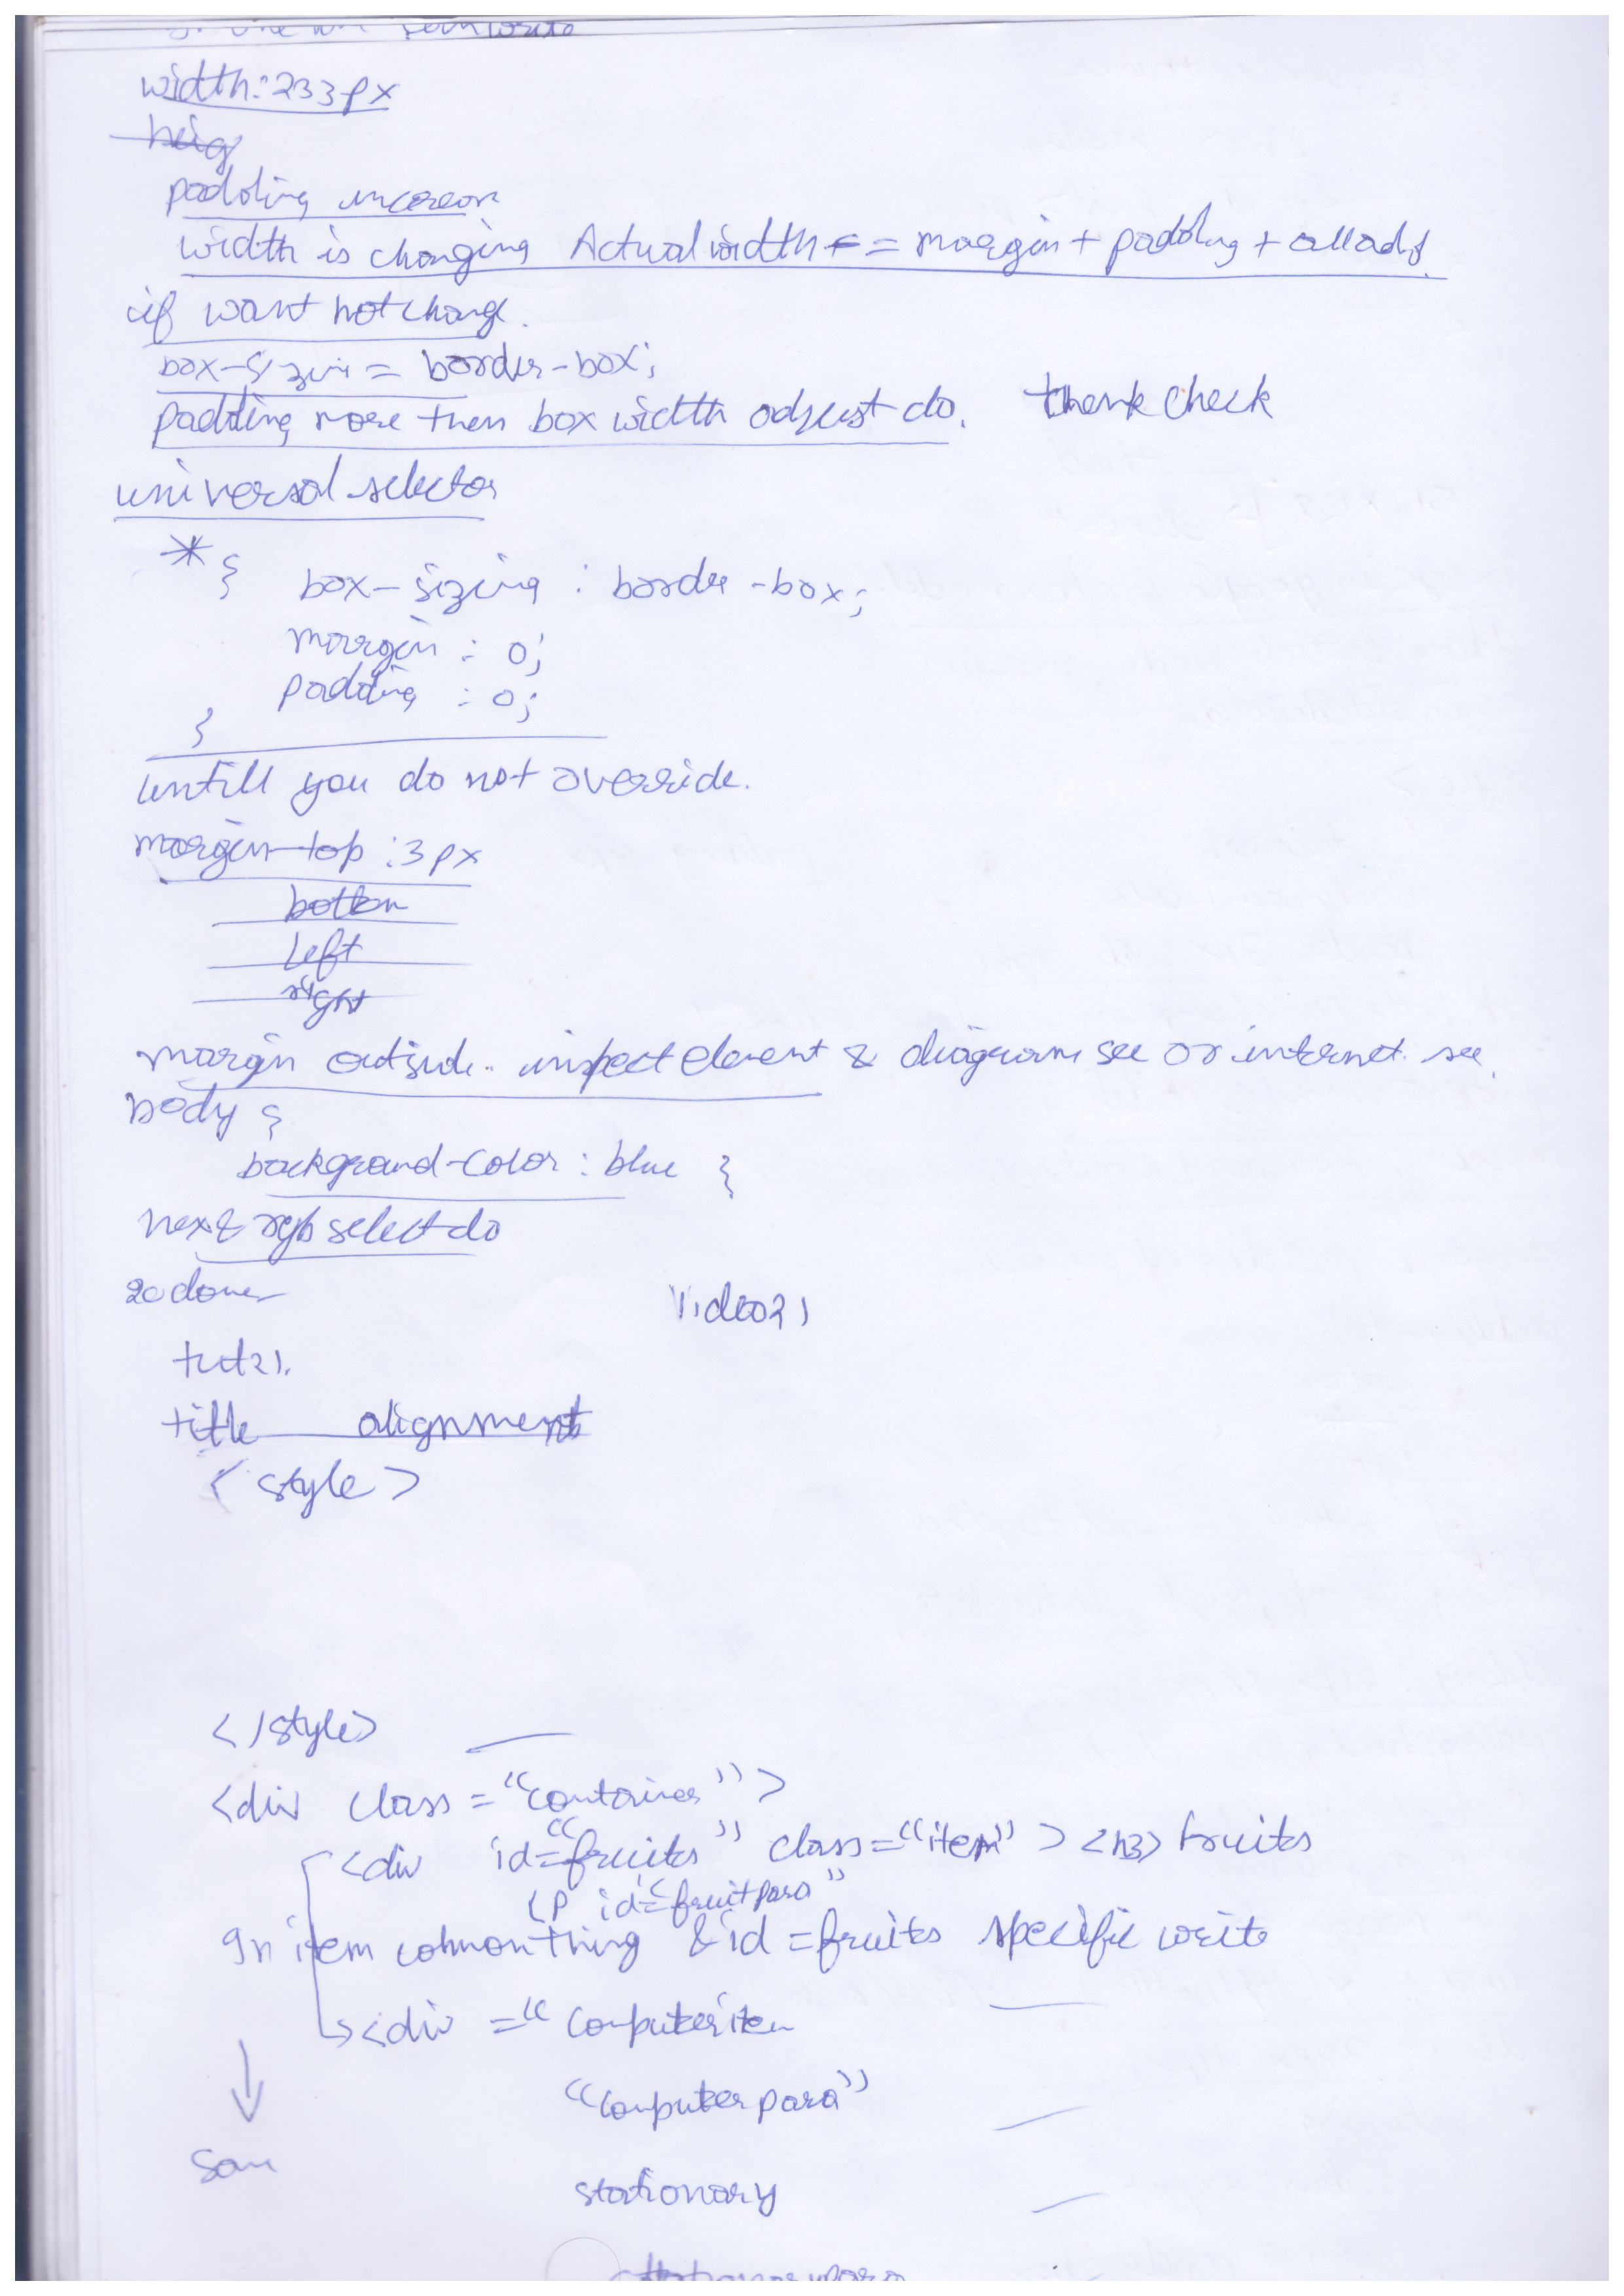 width: 233px
heig
padding increase
width is changing Actual width = margin + padding + all add
if want not change.
box-sizing = border-box;
padding more then box width adjust do. then check
universal selector
* {
box-sizing : border-box;
margin : 0;
padding : 0;
}
untill you do not override.
margin-top : 3px
bottom
left
right
margin outside. inspect element & diagram see or internet see.
body {
background-color : blue }
next rgb select do
20 done
Video 21
tut21.
title alignment
<style>
</style>
<div class = "container">
<div id="fruits" class="item"> <h3> fruits
<p id="fruitpara"
In item common thing & id = fruits specific write
<div = "computer item
"computer para"
Same
stationary